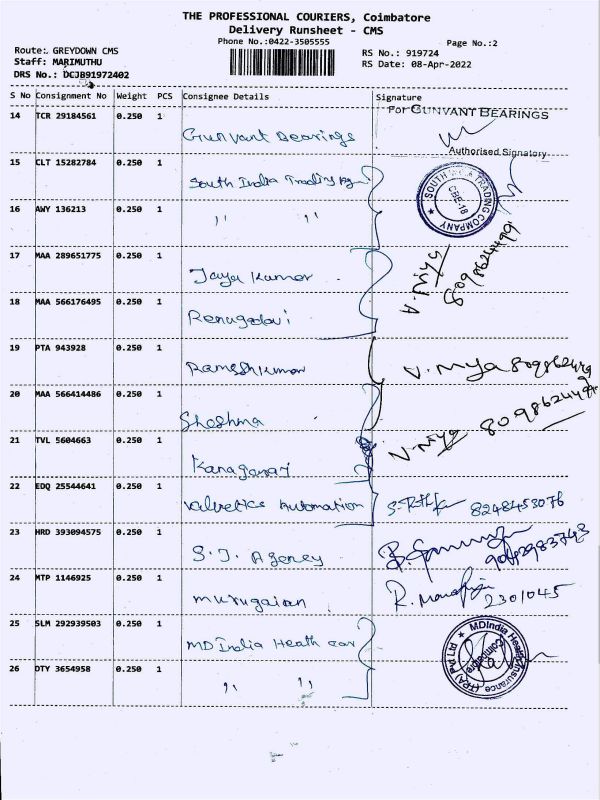 THE PROFESSIONAL COURIERS, Coimbatore
Delivery Runsheet - CMS
Phone No.:0422-3505555
Page No.:2
Route: GREYDOWN CMS
Staff: MARIMUTHU
DRS No.: DCJB91972402
RS No.: 919724
RS Date: 08-Apr-2022
S No Consignment No Weight PCS Consignee Details Signature
14 TCR 29184561 0.250 1 Gunvant Bearings
For GUNVANT BEARINGS
Authorised Signatory
15 CLT 15282784 0.250 1 South India Trading
SOUTH INDIA TRADING COMPANY
CBE-18
16 AWY 136213 0.250 1 ,, ,,
17 MAA 289651775 0.250 1 Jaya Kumar
18 MAA 566176495 0.250 1 Renugadevi
19 PTA 943928 0.250 1 Rameshkumar
20 MAA 566414486 0.250 1 Shoshma
21 TVL 5604663 0.250 1
22 EDQ 25544641 0.250 1 Valuetics Automation 8248453076
23 HRD 393094575 0.250 1 S.J. Agency
24 MTP 1146925 0.250 1 Murugaian 2301045
25 SLM 292939503 0.250 1 MD India Heath car
MDIndia Health Insurance (TPA) Pvt Ltd
Coimbatore
26 DTY 3654958 0.250 1 ,, ,,